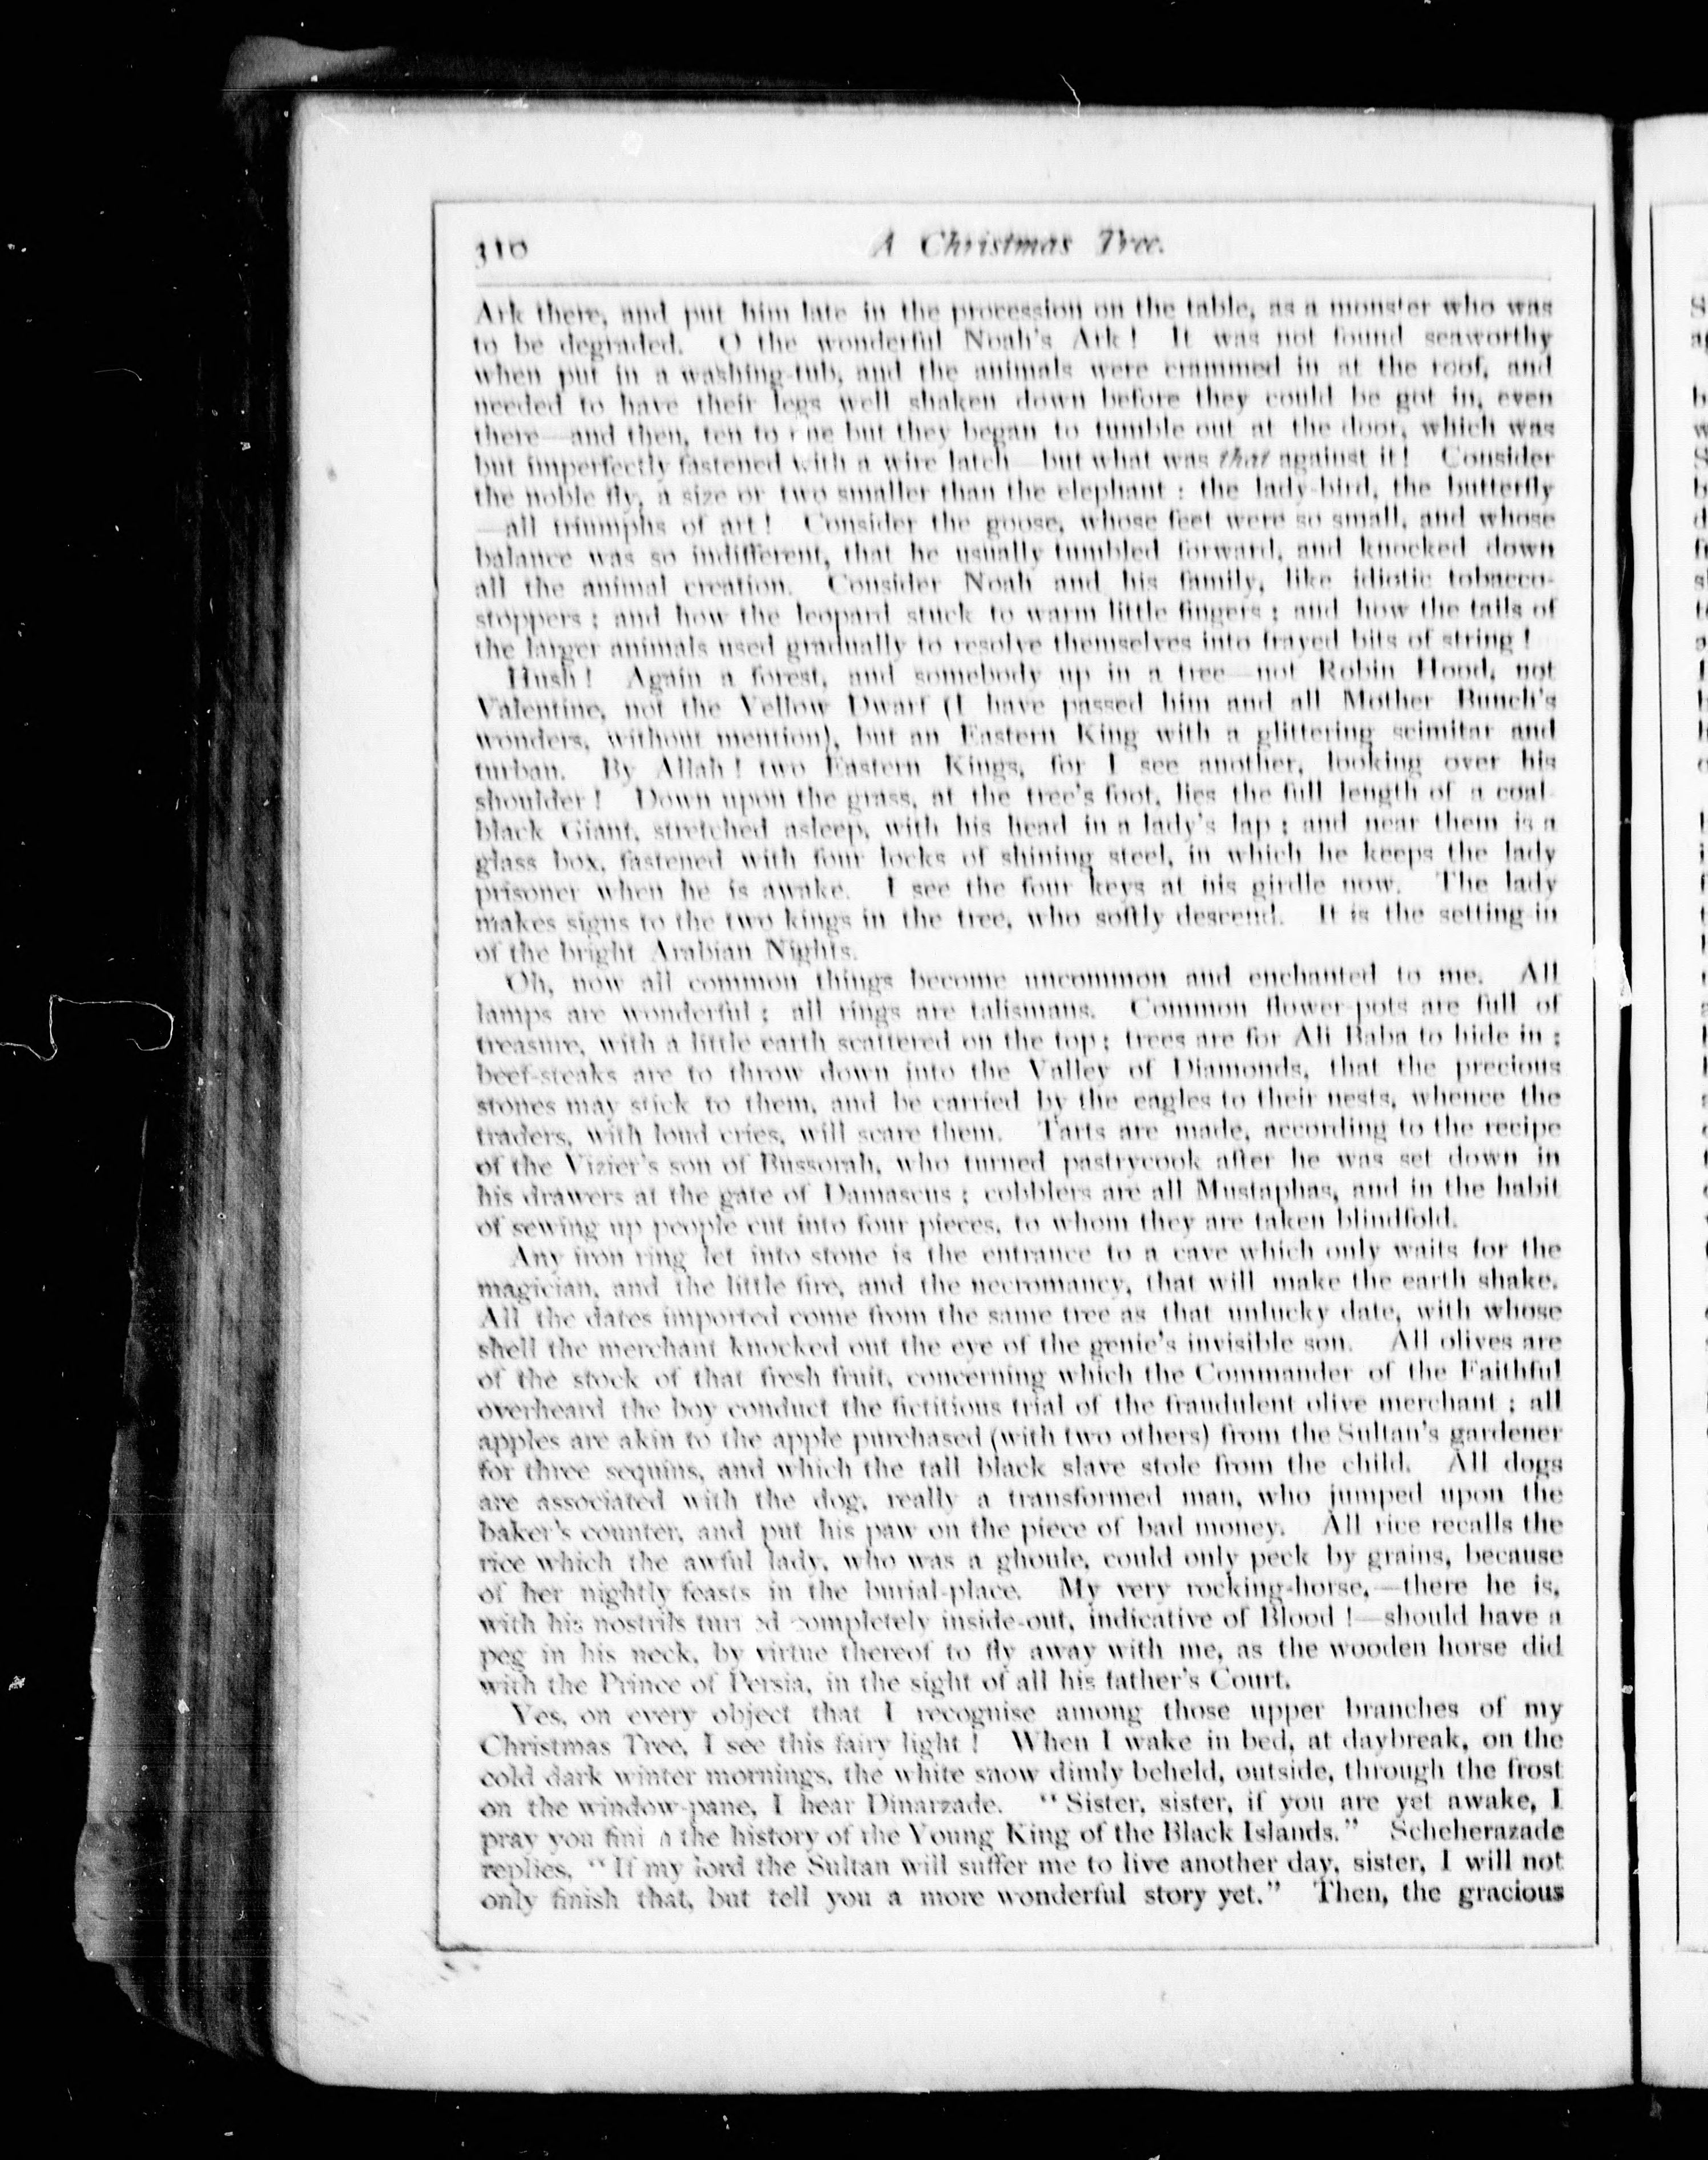 310
A Christmas Tree.
Ark there, and put him late in the procession on the table, as a monster who was
to be degraded. O the wonderful Noah's Ark! It was not found seaworthy
when put in a washing-tub, and the animals were crammed in at the roof, and
needed to have their legs well shaken down before they could be got in, even
there—and then, ten to one but they began to tumble out at the door, which was
but imperfectly fastened with a wire latch—but what was that against it! Consider
the noble fly, a size or two smaller than the elephant: the lady-bird, the butterfly
—all triumphs of art! Consider the goose, whose feet were so small, and whose
balance was so indifferent, that he usually tumbled forward, and knocked down
all the animal creation. Consider Noah and his family, like idiotic tobacco-
stoppers; and how the leopard stuck to warm little fingers; and how the tails of
the larger animals used gradually to resolve themselves into frayed bits of string!
Hush! Again a forest, and somebody up in a tree—not Robin Hood, not
Valentine, not the Yellow Dwarf (I have passed him and all Mother Bunch's
wonders, without mention), but an Eastern King with a glittering scimitar and
turban. By Allah! two Eastern Kings, for I see another, looking over his
shoulder! Down upon the grass, at the tree's foot, lies the full length of a coal-
black Giant, stretched asleep, with his head in a lady's lap; and near them is a
glass box, fastened with four locks of shining steel, in which he keeps the lady
prisoner when he is awake. I see the four keys at his girdle now. The lady
makes signs to the two kings in the tree, who softly descend. It is the setting-in
of the bright Arabian Nights.
Oh, now all common things become uncommon and enchanted to me. All
lamps are wonderful; all rings are talismans. Common flower-pots are full of
treasure, with a little earth scattered on the top; trees are for Ali Baba to hide in;
beef-steaks are to throw down into the Valley of Diamonds, that the precious
stones may stick to them, and be carried by the eagles to their nests, whence the
traders, with loud cries, will scare them. Tarts are made, according to the recipe
of the Vizier's son of Bussorah, who turned pastrycook after he was set down in
his drawers at the gate of Damascus; cobblers are all Mustaphas, and in the habit
of sewing up people cut into four pieces, to whom they are taken blindfold.
Any iron ring let into stone is the entrance to a cave which only waits for the
magician, and the little fire, and the necromancy, that will make the earth shake.
All the dates imported come from the same tree as that unlucky date, with whose
shell the merchant knocked out the eye of the genie's invisible son. All olives are
of the stock of that fresh fruit, concerning which the Commander of the Faithful
overheard the boy conduct the fictitious trial of the fraudulent olive merchant; all
apples are akin to the apple purchased (with two others) from the Sultan's gardener
for three sequins, and which the tall black slave stole from the child. All dogs
are associated with the dog, really a transformed man, who jumped upon the
baker's counter, and put his paw on the piece of bad money. All rice recalls the
rice which the awful lady, who was a ghoule, could only peck by grains, because
of her nightly feasts in the burial-place. My very rocking-horse,—there he is,
with his nostrils turned completely inside-out, indicative of Blood!—should have a
peg in his neck, by virtue thereof to fly away with me, as the wooden horse did
with the Prince of Persia, in the sight of all his father's Court.
Yes, on every object that I recognise among those upper branches of my
Christmas Tree, I see this fairy light! When I wake in bed, at daybreak, on the
cold dark winter mornings, the white snow dimly beheld, outside, through the frost
on the window-pane, I hear Dinarzade. "Sister, sister, if you are yet awake, I
pray you finish the history of the Young King of the Black Islands." Scheherazade
replies, "If my lord the Sultan will suffer me to live another day, sister, I will not
only finish that, but tell you a more wonderful story yet." Then, the gracious